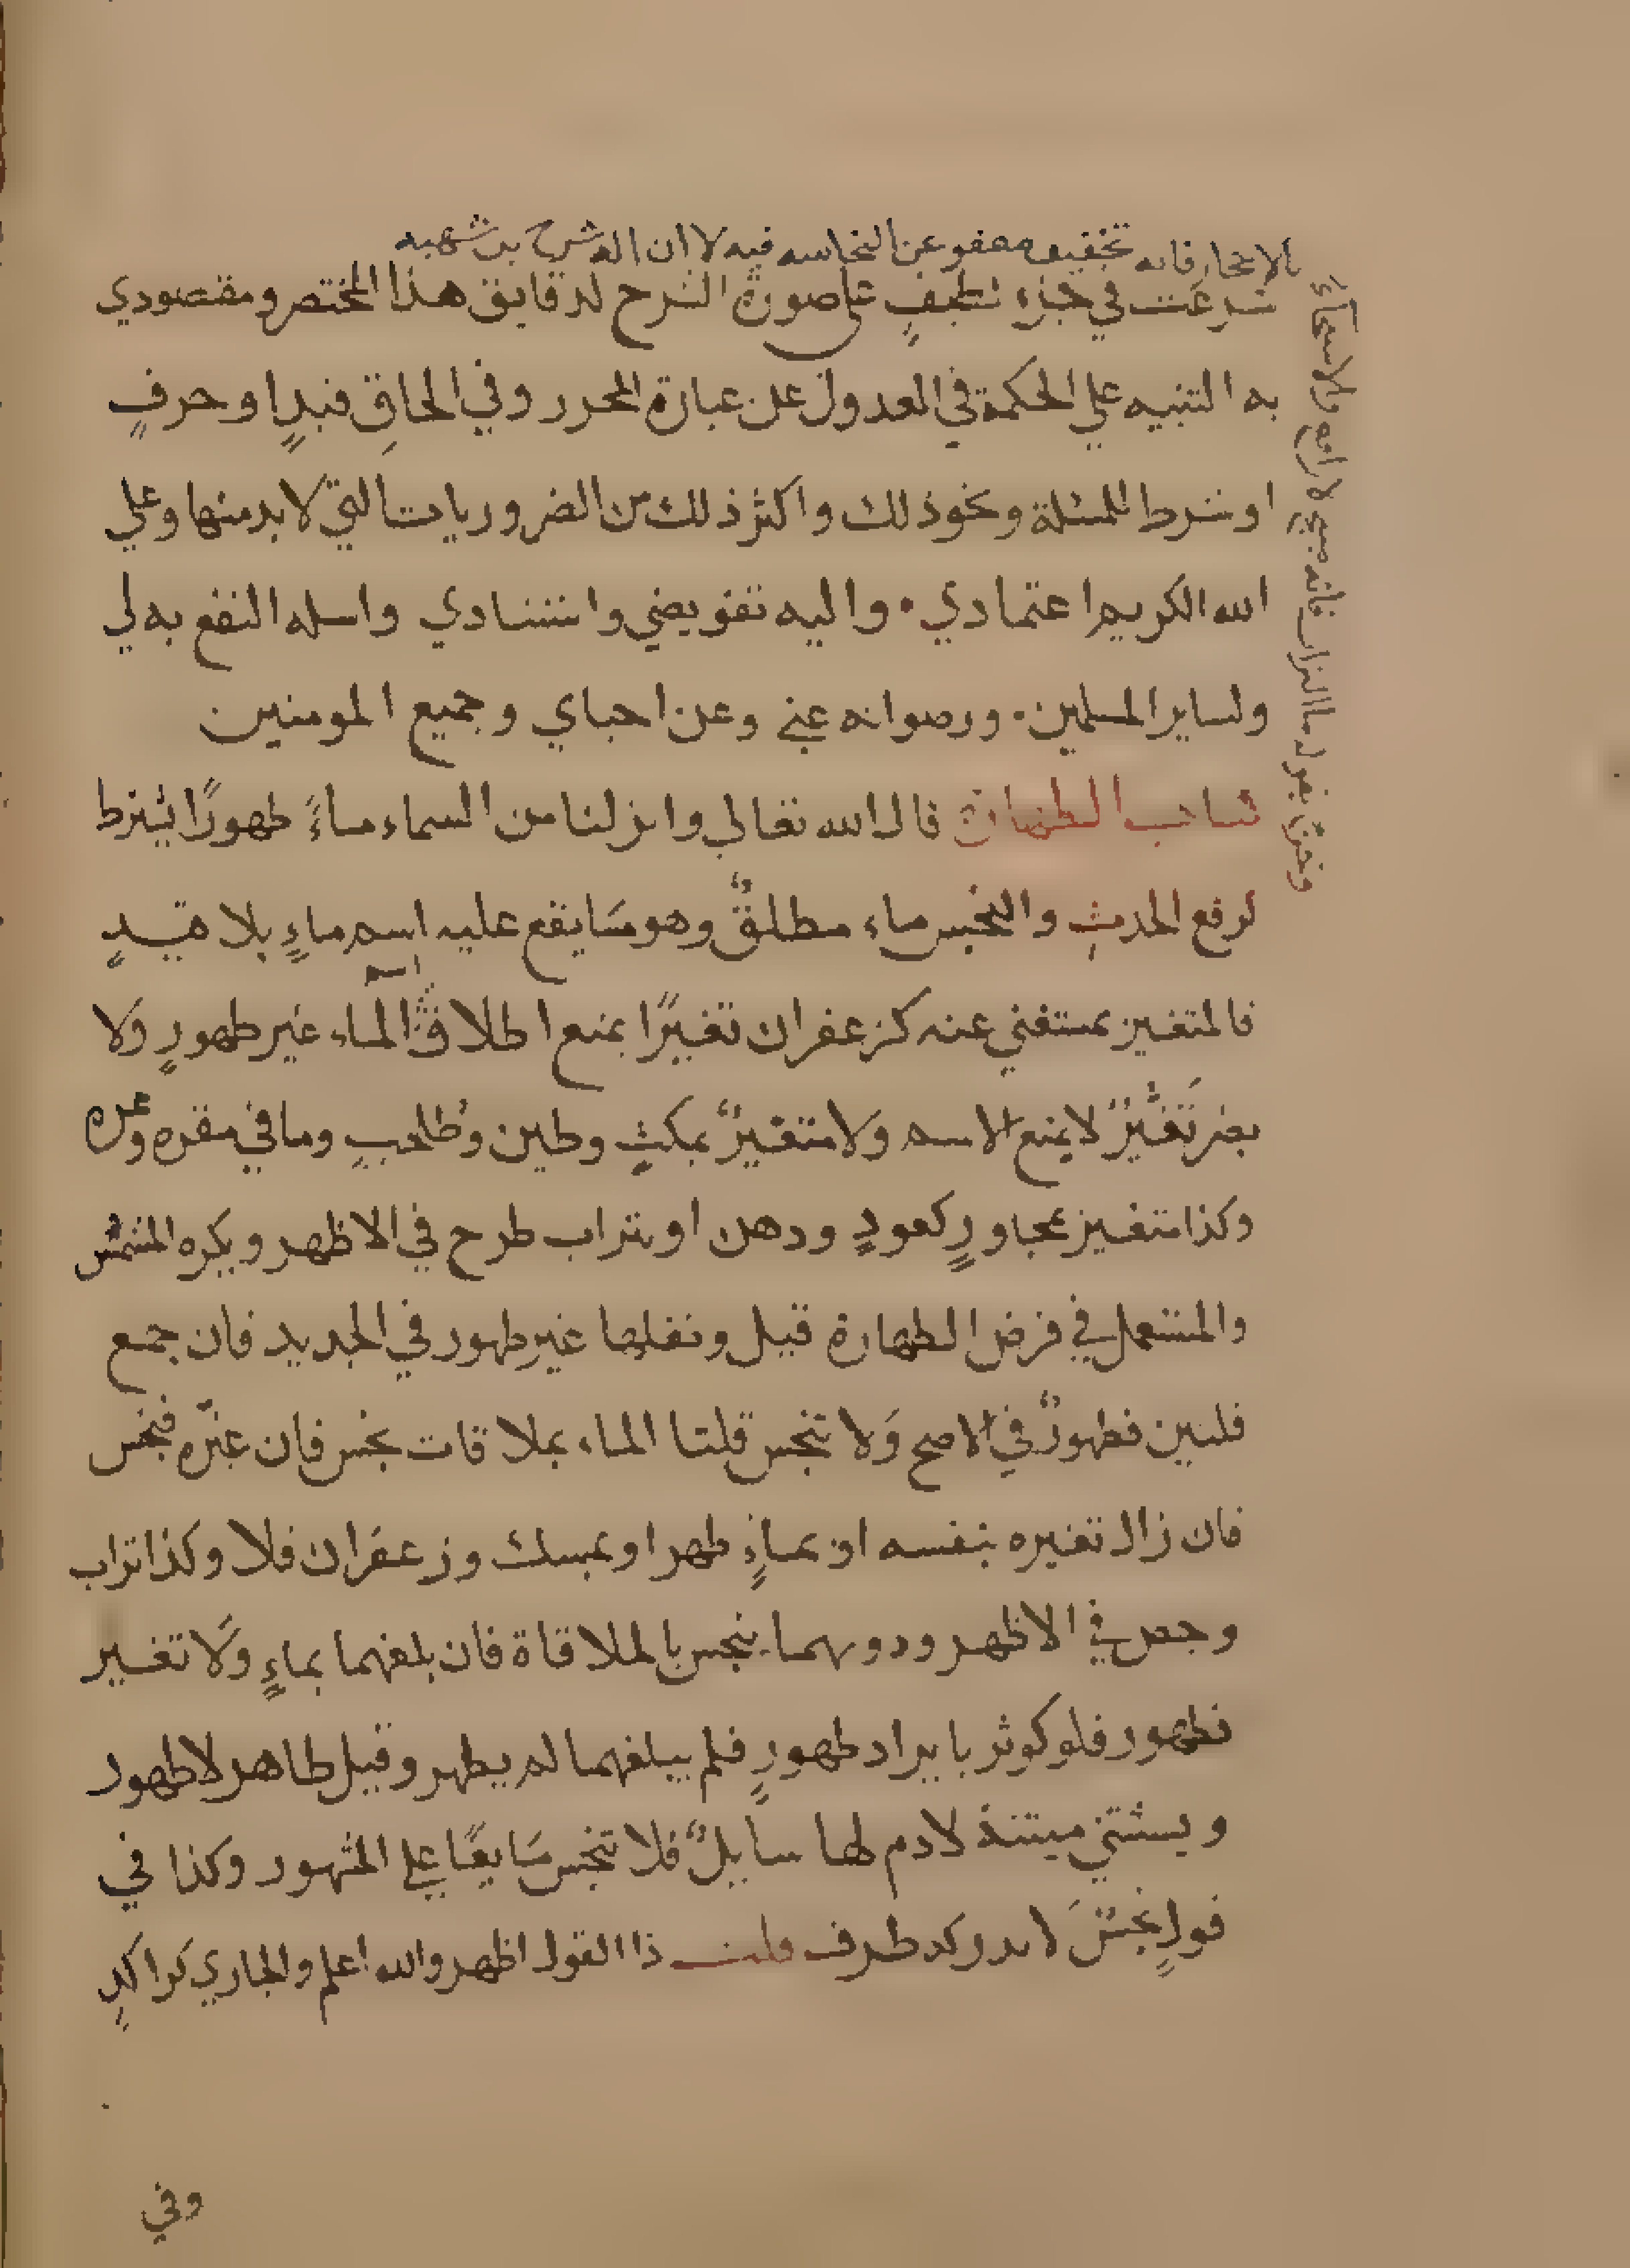 بالاحجار فانه تخفيف معفو عن النجاسه فيه لا ان اله شرح بن شهبه
شرعت في جزء لطيفٍ على صورة الشرح لدقايق هذا المختصر ومقصودي
به التنبيه علي الحكمة في العدول عن عبارة المحرر وفي الحاقِ قيدٍ او حرفٍ
او شرط للمسئلة ونحوذلك واكثر ذلك من الضروريات التي لابد منها وعلي
الله الكريم اعتمادي واليه تفويضي واستنادي واسله النفع به لي
ولساير المسلمين ورضوانه عني وعن احباي وجميع المومنين
كتاب الطهارة قال الله تعالي وانزلنا من السماء ماءً طهورًا يشترط
لرفع الحدثِ والنجس ماء مطلقٌ وهو مَا يقع عليه اسم ماءٍ بلا قيدٍ
فالمتغير بمستغني عنه كزعفران تغيرًا يمنع اطلاق اسم الماء غير طهورٍ وَلا
يضر تَغَيُّرٌ لا يمنع الاسم وَلا متغيرٌ بمكثٍ وطين وطُحلبٍ وما في مقره وممره
وكذا متغير بمجاورٍ كعودٍ ودهن او بتراب طرح في الاظهر ويكره المشمس
والمستعمل في فرض الطهارة قيل ونفلها غير طهور في الجديد فان جمع
قلتين فطهورٌ في الاصح وَلا تنجس قلتا الماء بملاقات نجس فان غيّره فنجس
فان زال تغيره بنفسه او بماءٍ طهر او بمسك وزعفران فلا وكذا تراب
وجص في الاظهر ودونهما ينجس بالملاقاة فان بلغهما بماءٍ وَلا تغير
فطهور فلو كوثر بايراد طهورٍ فلم يبلغهما لم يطهر وقيل طاهر لا طهور
ويستثني ميتة لا دم لها سايلٌ فلا تنجس مَايعًا علي المشهور وكذا في
قولٍ نجسٌ لا يدركه طرف قلت ذا القول اظهر والله اعلم والجاري كراكدٍ
وفي